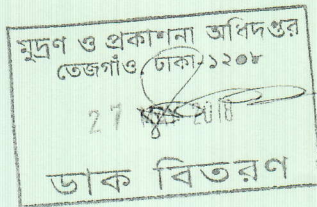 মুদ্রণ ও প্রকাশনা অধিদপ্তর
তেজগাঁও, ঢাকা-১২০৮
27 2010
ডাক বিতরণ